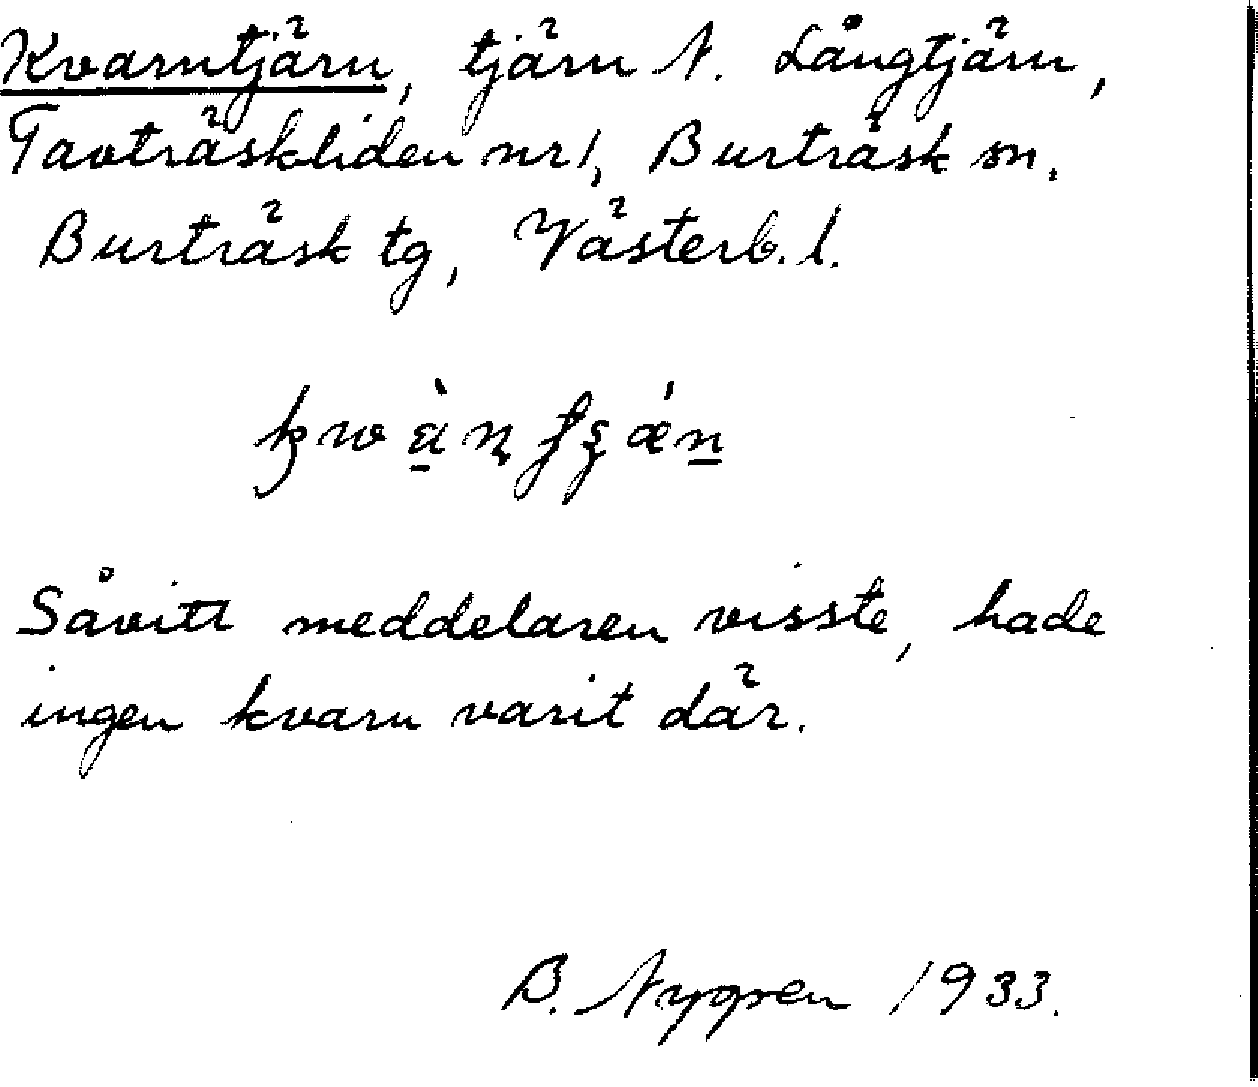 Kvarntjärn, tjärn N. Långtjärn,
Tavträskliden nr 1, Burträsk sn.
Burträsk tg, Västerb. l.
Såvitt meddelaren visste, hade
ingen kvarn varit där.
B. Nygren 1933.